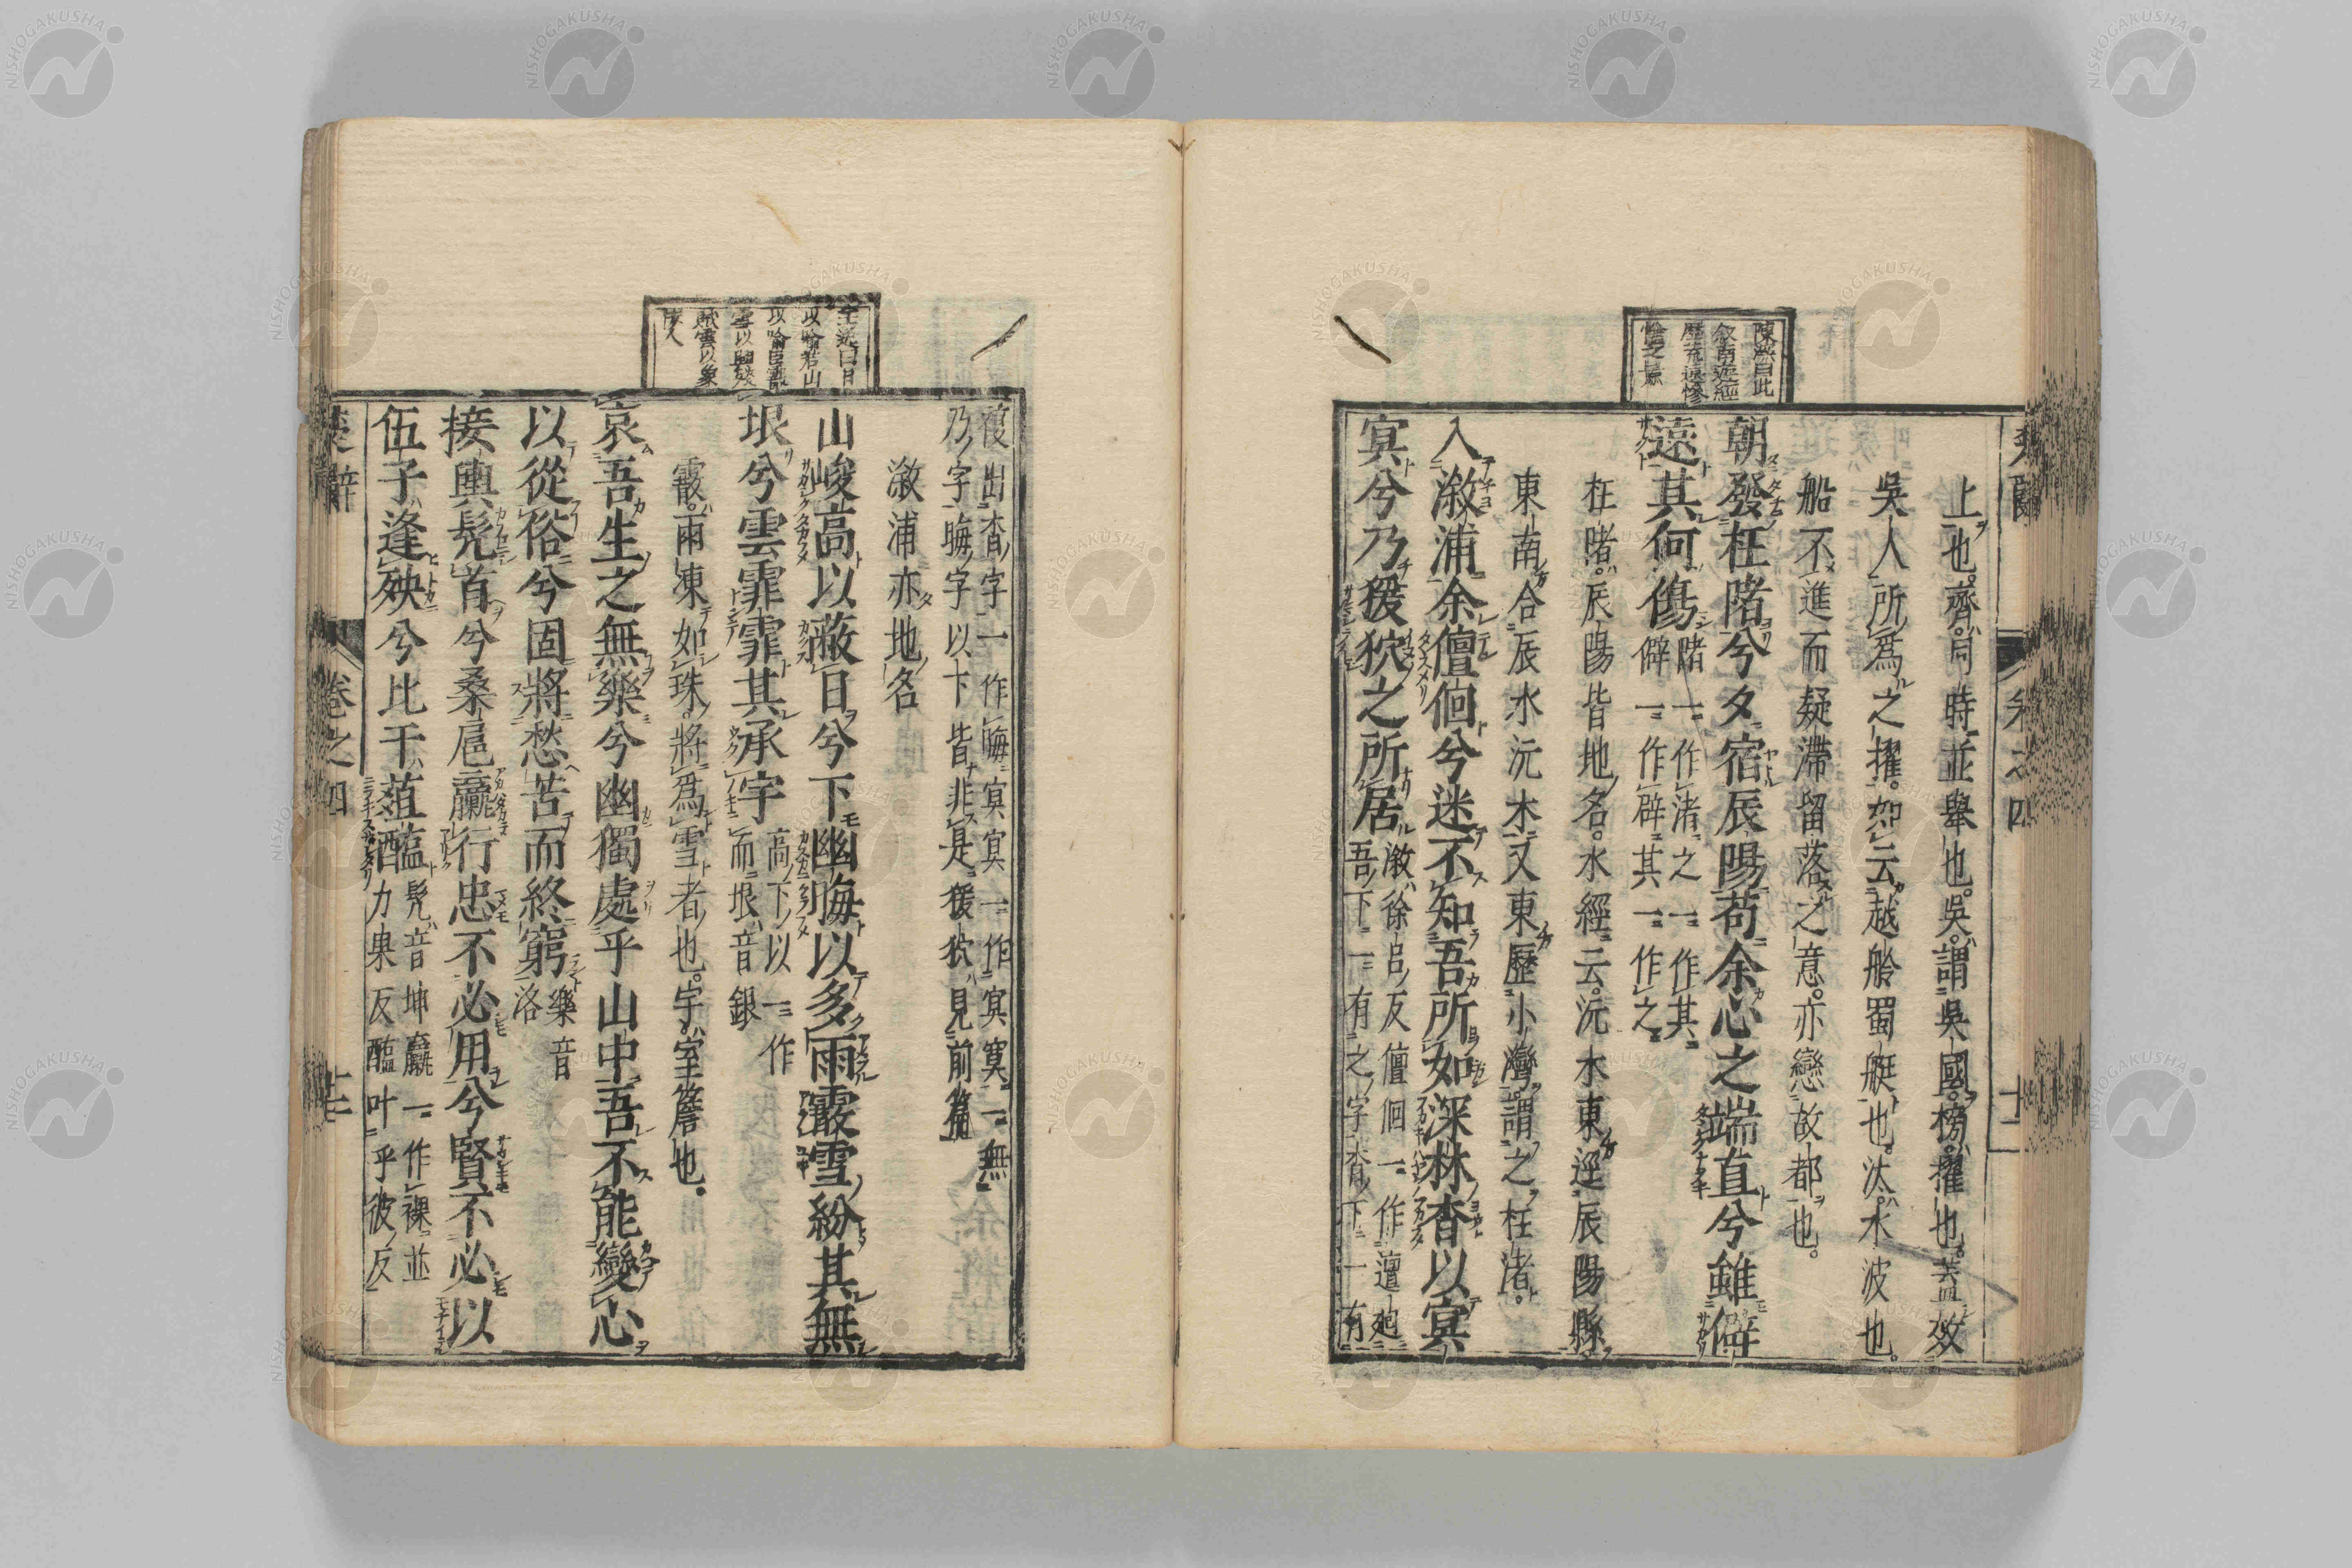 陳深曰此
叙南遊經
歷荒遠慘
愴之景
上也。齊。同時並舉也。吳。謂吳國。榜。擢也。蓋效
吳人所爲之擢。如云越舲蜀艇也。汰。水波也。
船不進而疑滯留落之意。亦戀故都也。
朝發枉陼兮夕宿辰陽苟余心之端直兮雖僻
遠其何傷
陼一作渚之一作其
僻一作辟其一作之
枉陼。辰陽皆地名。水經云。沅水東逕辰陽縣
東南合辰水沅水又東歷小灣。謂之枉渚。
入溆浦余儃佪兮迷不知吾所如深林杳以冥
冥兮乃猨狖之所居
溆徐呂反儃佪一作邅廻
吾下一有之字杳下一有
複出杳字一作晦冥冥一作冥寞一無
乃字晦字以下皆非是猨狖見前篇
溆浦亦地名
王逸曰日
以喻君山
以喻臣霰
雪以興殘
賊雲以象
佞人
山峻高以蔽日兮下幽晦以多雨霰雪紛其無
垠兮雲霏霏其承宇
高下以一作
而垠音銀
霰。雨凍如珠。將爲雪者也。宇。室簷也。
哀吾生之無樂兮幽獨處乎山中吾不能變心
以從俗兮固將愁苦而終窮
樂音
洛
接輿髠首兮桑扈臝行忠不必用兮賢不必以
伍子逢殃兮比干菹醢
髠音坤臝一作裸並
力果反醢叶乎彼反
楚辭 卷之四
NISHOGAKUSHA